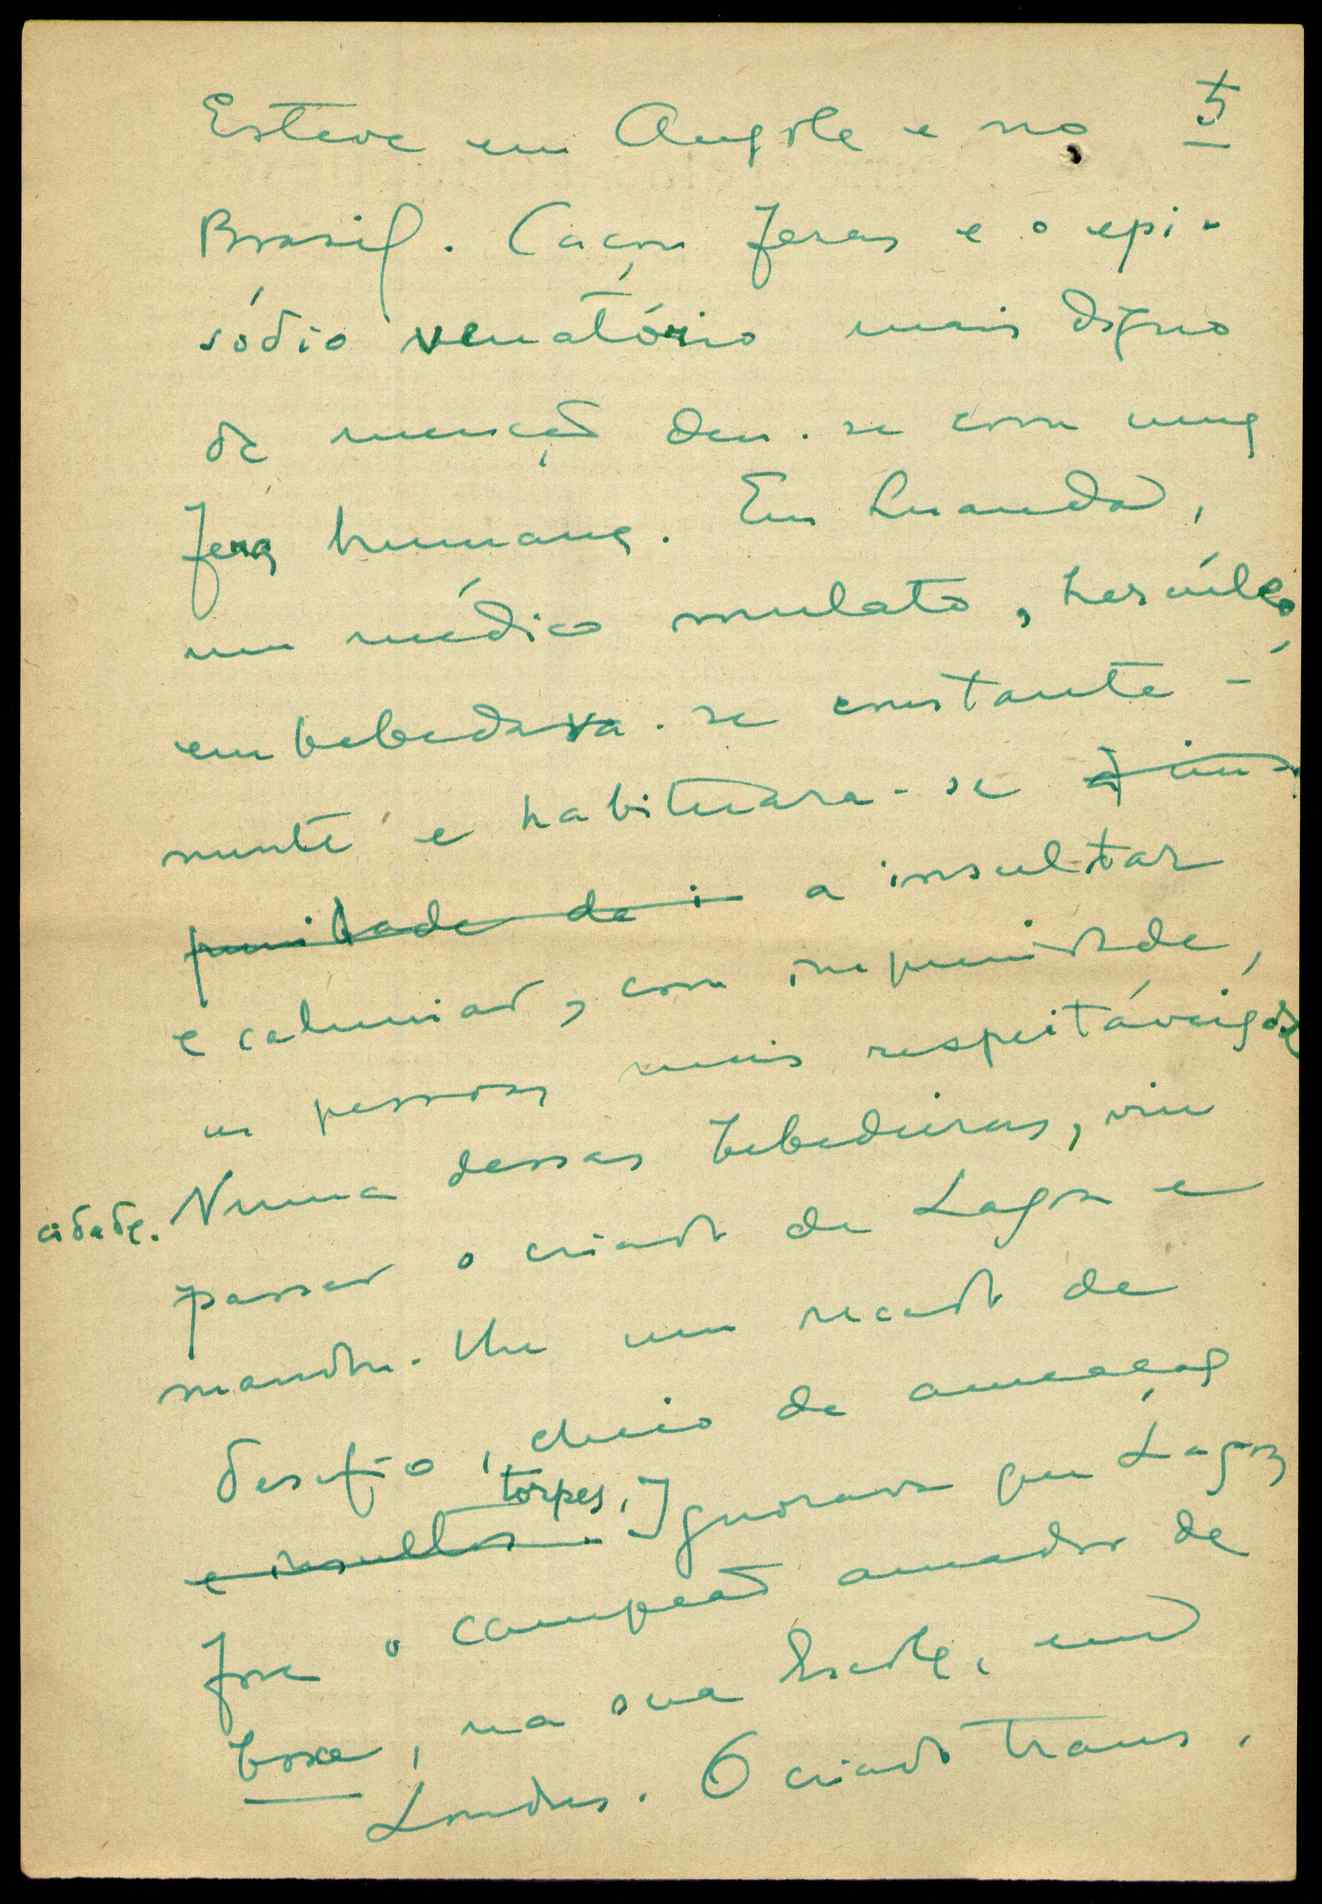 5
Esteve em Angola e no
Brasil. Caçou feras e o epi-
sódio venatório mais digno
de menção deu-se com uma
fera humana. Em Luanda,
um médico mulato, hercúleo,
embebedava-se constante-
mente e habituara-se à im-
punidade de i a insultar
e caluniar, com impunidade,
as pessoas mais respeitáveis da
cidade. Numa dessas bebedeiras, viu
passar o criado de Lagoa e
mandou-lhe um recado de
desafio, cheio de ameaças
e insultos. torpes. Ignorava que Lagoa
fora o campeão amador de
boxe, na sua Escola, em
Londres. O criado trans-